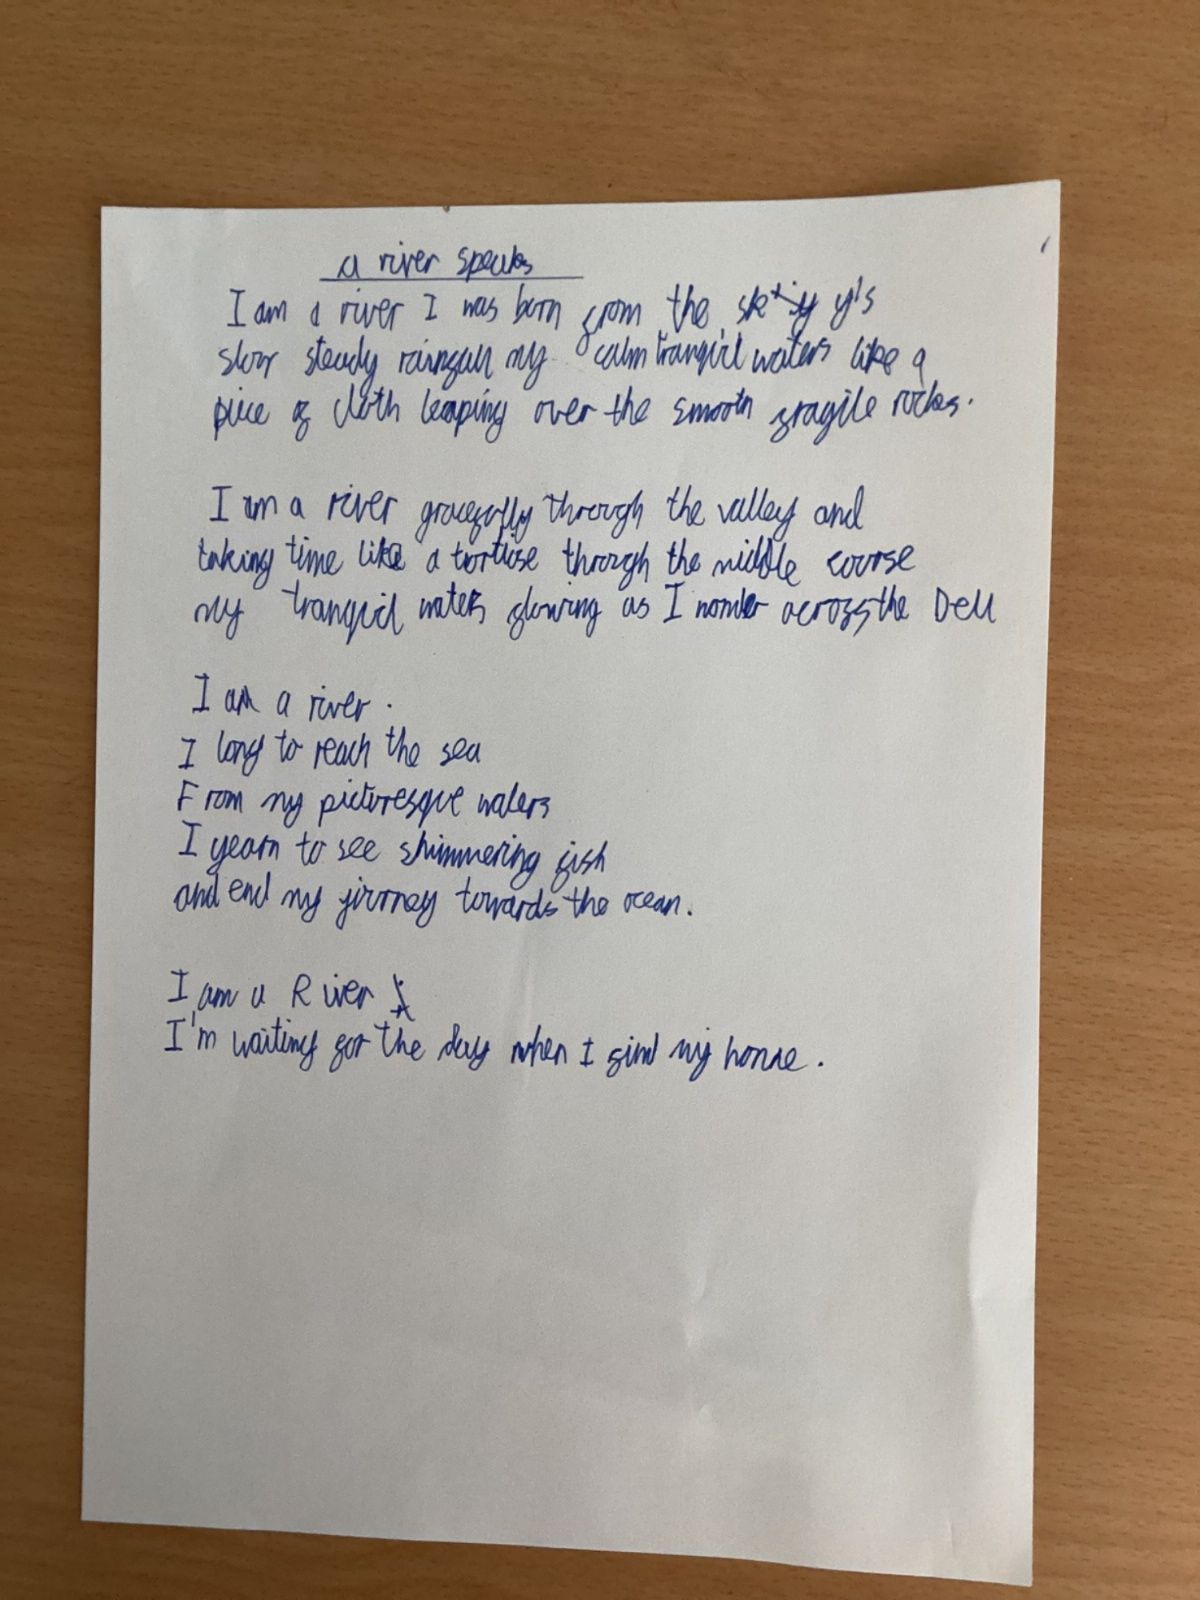 a river speaks
I am a river I was born from the sky's
slow steady rainfall my calm tranquil waters like a
piece of cloth leaping over the smooth fragile rocks.
I am a river gracefully through the valley and
taking time like a tortise through the middle course
my tranquil waters flowing as I wonder across the Dell
I am a river.
I long to reach the sea
From my picturesque waters
I yearn to see shimmering fish
and end my jiurney towards the ocean.
I am a River
I'm waiting for the day when I find my home.